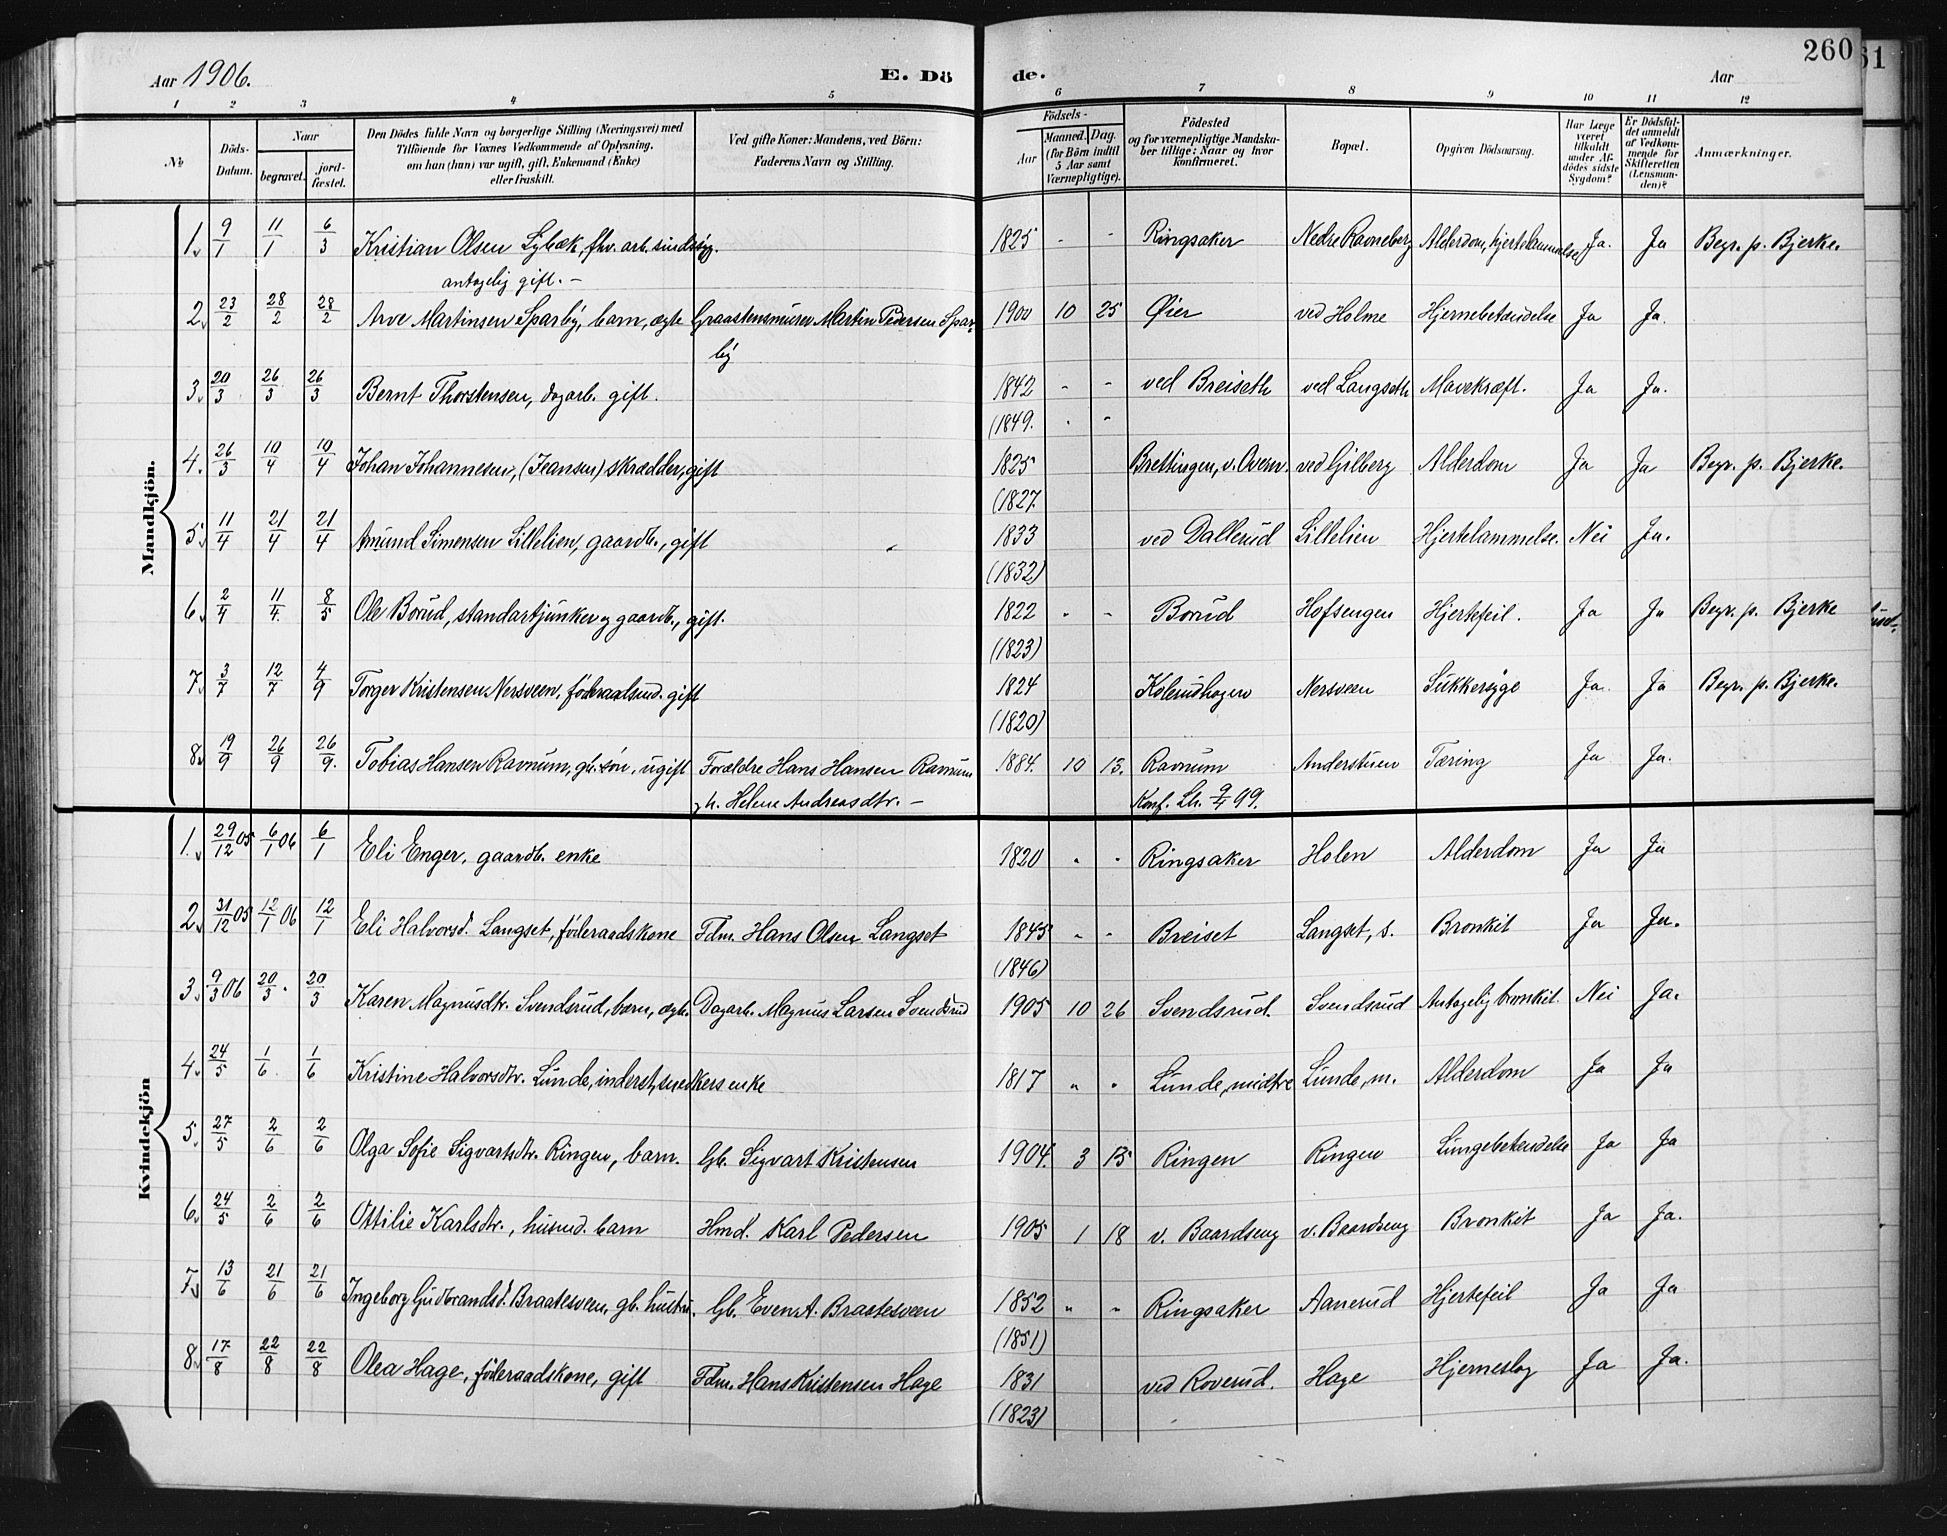 260
61
Aar 1906. E. Dö de. Aar
1 2 3 4 5 6 7 8 9 10 11 12
№
Döds-Datum.
Naar
begravet.
jord-fæstet.
Den Dödes fulde Navn og borgerlige Stilling (Næringsvei) med
Tilföiende for Voxnes Vedkommende af Oplysning,
om han (hun) var ugift, gift, Enkemand (Enke)
eller fraskilt.
Ved gifte Koner: Mandens, ved Börn:
Faderens Navn og Stilling.
Födsels-
Aar
Maaned. Dag.
(for Börn indtil
5 Aar samt
Værnepligtige).
Födested
og for værnepligtige Mandska-
ber tillige: Naar og hvor
konfirmeret.
Bopæl.
Opgiven Dödsaarsag.
Har Læge
været
tilkaldt
under Af-
dödes sidste
Sygdom?
Er Dödsfal-
det anmeldt
af Vedkom-
mende for
Skifteretten
(Lensman-
den)?
Anmærkninger.
Mandkjön.
1. 9/1 11/1 6/3 Kristian Olsen Lybæk, fhv. arb. sindssyg. 1825 - - Ringsaker Nedre Ravneberg Alderdom, hjertelammelse Ja. Ja Begr. p. Bjerke.
antagelig gift. -
2. 23/2 28/2 28/2 Arve Martinsen Sparby, barn, ægte Graastensmurer Martin Pedersen Spar- 1900 10 25 Øier ved Holme Hjernebetændelse Ja Ja.
by
3. 20/3 26/3 26/3 Bernt Thorstensen, dagarb. gift. 1842 - - ved Breiseth ved Langseth Mavekræft. Ja Ja.
(1849. - -
4. 26/3 10/4 10/4 Johan Johannesen, (Jeansen) skrædder, gift 1825 Brettingen, v. Overn. ved Gilberg Alderdom Ja Ja Begr. p. Bjerke.
(1827.
5. 11/4 21/4 21/4 Amund Simensen Lillelien, gaardb., gift 1833 ved Dallerud Lillelien Hjertelammelse. Nei Ja.
(1832)
6. 2/4 11/4. 8/5 Ole Borud, standartjunker og gaardb., gift. 1822 - - Borud Hofsengen Hjertefeil. Ja Ja Begr. p. Bjerke
(1823)
7. 3/7 12/7 4/9 Torger Kristensen Nersveen, føderaadsmd. gift 1824 Kolerudhagen Nersveen Sukkersyge Ja. Ja Begr. p. Bjerke.
(1820)
8. 19/9 26/9 26/9. Tobias Hansen Ravnum, gb. søn, ugift Forældre Hans Hansen Ravnum 1884. 10 13. Ravnum Anderstuen Tæring Ja Ja.
og h. Helene Andreasdtr. - Konf. Lh. 9/4 99.
Kvindekjön
1. 29/12 05 6/1 06 6/1 Eli Enger, gaardb. enke 1820 " " Ringsaker Holen Alderdom Ja Ja
2. 31/12 05 12/1 06 12/1 Eli Halvorsd. Langset, føderaadskone Fdm. Hans Olsen Langset 1845 " " Breiset Langset, s. Bronkit Ja Ja.
(1846)
3. 9/3 06 20/3. 20/3 Karen Magnusdtr. Svendsrud, barn, ægte. Dagarb. Magnus Larsen Svendsrud 1905 10 26 Svendsrud. Svendsrud Antagelig bronkit. Nei Ja.
4. 24/5 1/6. 1/6 Kristine Halvorsdtr. Lunde, inderst, snedkers enke 1817 " " Lunde, midtre Lunde, m. Alderdom Ja Ja
5. 27/5 2/6 2/6 Olga Sofie Sigvartsdtr. Ringen, barn. Gb. Sigvart Kristensen 1904. 3 15 Ringen Ringen Lungebetændelse Ja Ja
6. 24/5 2/6 2/6 Ottilie Karlsdtr., husmd. barn Hmd. Karl Pedersen 1905 1 18 v. Baardseng v. Baardseng Bronkit Ja Ja.
7. 13/6 21/6 21/6 Ingeborg Gudbrandsd. Braatesveen, gb. hustru. Gb. Even A. Braatesveen 1852 " " Ringsaker Aanerud Hjertefeil Ja Ja
(1851)
8. 17/8 22/8 22/8 Olea Hage, føderaadskone, gift Fdm. Hans Kristensen Hage 1831 ved Roverud. Hage Hjerneslag Ja Ja.
(1823)